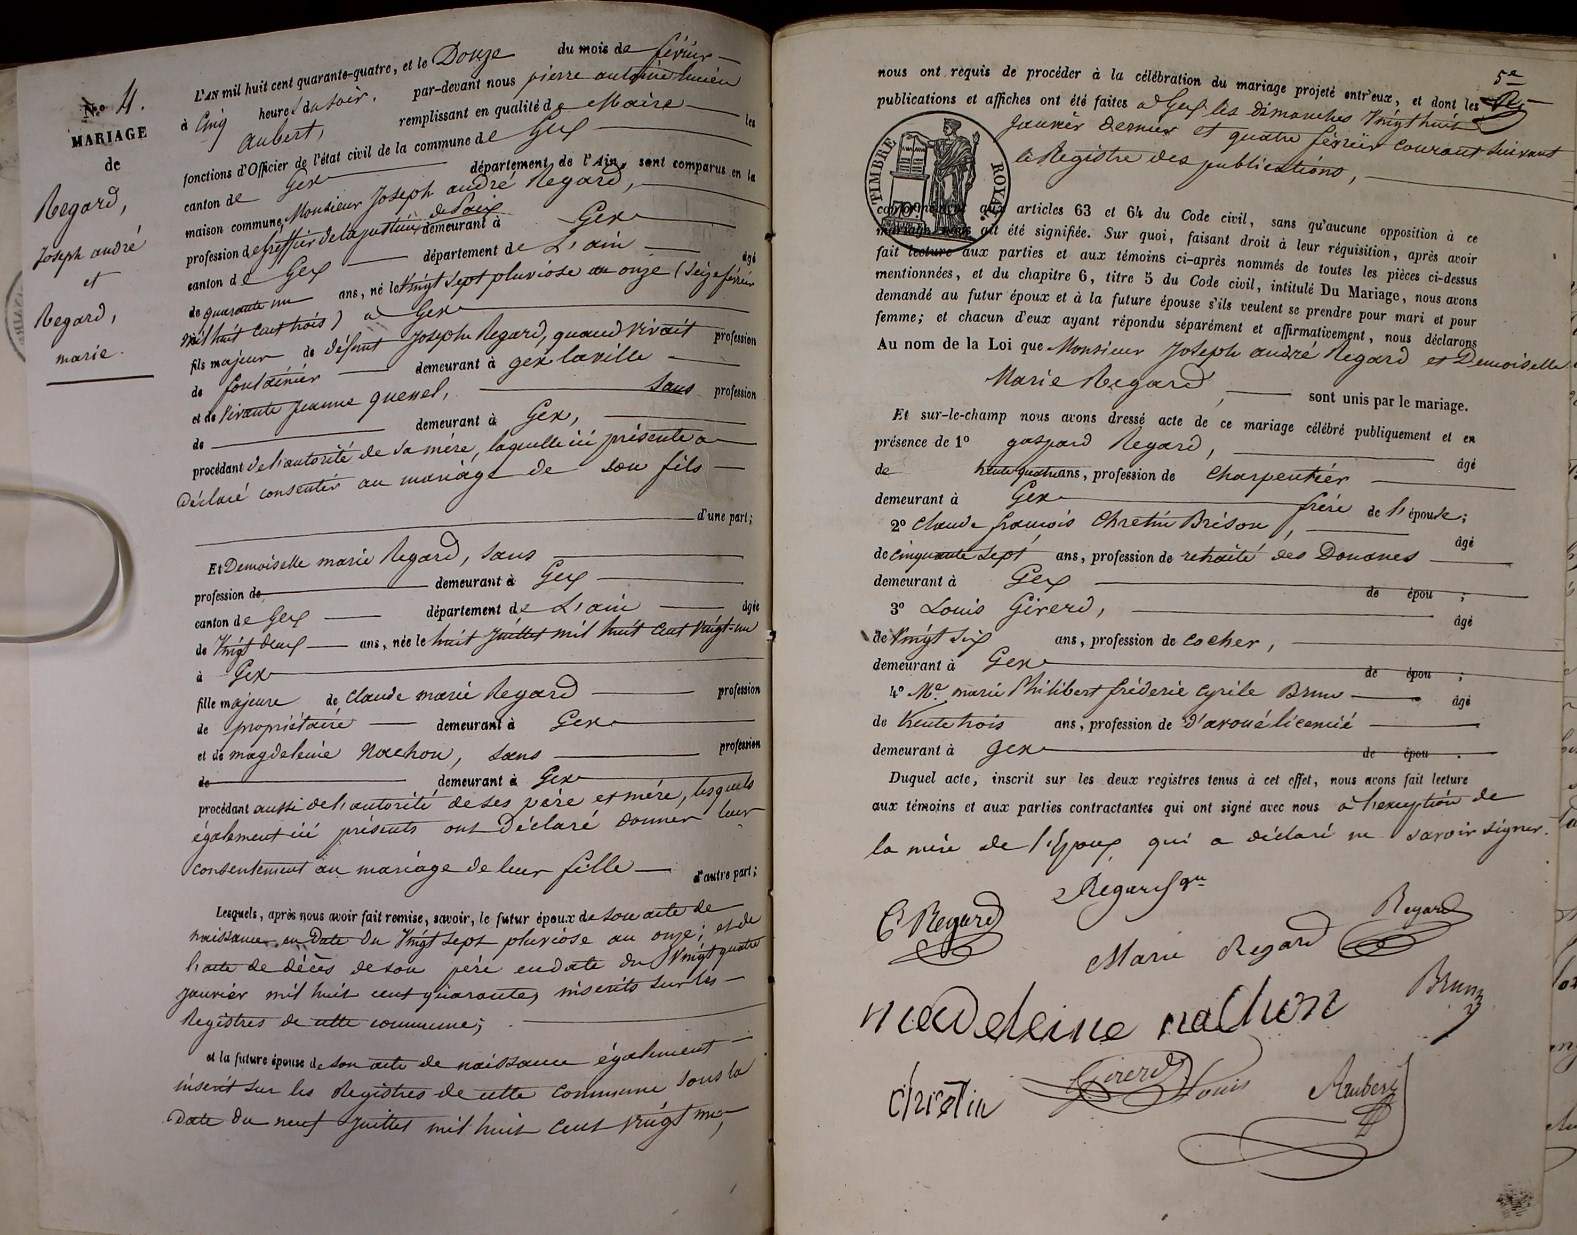 N.º 4.
MARIAGE
de
Regard,
Joseph andré
et
Regard,
marie.
L'AN mil huit cent quarante-quatre, et le Douze du mois de février
à Cinq heures du soir, par-devant nous pierre antoine lucien
aubert, remplissant en qualité de Maire les
fonctions d'Officier de l'état civil de la commune de Gex
canton de Gex département de l'Ain, sont comparus en la
maison commune, Monsieur Joseph andré Regard,
profession de greffier de la justice de Paix demeurant à Gex
canton de Gex département de L'ain âgé
de quarante un ans, né le Vingt sept pluviose an onze (Seize février
mil huit cent trois) à Gex
fils majeur de défunt Joseph Regard, quand vivait profession
de fontainier demeurant à gex la ville
et de vivante Jeanne quenel, sans profession
de demeurant à Gex,
procédant de l'autorité de sa mère, laquelle ici présente a
Déclaré consentir au mariage de son fils
d'une part;
Et Demoiselle marie Regard, sans
profession de demeurant à Gex
canton de Gex département de L'ain âgée
de Vingt deux ans, née le huit Juillet mil huit cent vingt-un
à Gex
fille majeure de Claude marie Regard profession
de propriétaire demeurant à Gex
et de magdeleine Nachon, sans profession
de demeurant à Gex
procédant aussi de l'autorité de ses père et mère, lesquels
également ici présents ont Déclaré donner leur
consentement au mariage de leur fille d'autre part;
Lesquels, après nous avoir fait remise, savoir, le futur époux de son acte de
naissance en Date du Vingt sept pluviose an onze; et de
l'acte de décès de son père en date du Vingt quatre
Janvier mil huit cent quarante, inscrits sur les
Registres de cette commune;
et la future épouse de son acte de naissance également
inscrit sur les Registres de cette Commune sous la
Date du neuf Juillet mil huit Cent Vingt un,
5e
nous ont requis de procéder à la célébration du mariage projeté entr'eux, et dont les
publications et affiches ont été faites à Gex les dimanches Vingt huit
Janvier dernier et quatre février courant suivant
le Registre des publications,
TIMBRE ROYAL
conformément aux articles 63 et 64 du Code civil, sans qu'aucune opposition à ce
mariage nous ait été signifiée. Sur quoi, faisant droit à leur réquisition, après avoir
fait lecture aux parties et aux témoins ci-après nommés de toutes les pièces ci-dessus
mentionnées, et du chapitre 6, titre 5 du Code civil, intitulé Du Mariage, nous avons
demandé au futur époux et à la future épouse s'ils veulent se prendre pour mari et pour
femme; et chacun d'eux ayant répondu séparément et affirmativement, nous déclarons
Au nom de la Loi que Monsieur Joseph andré Regard et Demoiselle
Marie Regard, sont unis par le mariage.
Et sur-le-champ nous avons dressé acte de ce mariage célébré publiquement et en
présence de 1º gaspard Regard, âgé
de trente quatre ans, profession de Charpentier
demeurant à Gex frère de l'épouse;
2º Claude françois Chretin Brison, âgé
de cinquante sept ans, profession de retraité des Douanes
demeurant à Gex de épou ;
3º Louis Girerd, âgé
de Vingt six ans, profession de cocher,
demeurant à Gex de épou ;
4º Me marie Philibert fréderic Cyrile Brun âgé
de trente trois ans, profession de d'avoué licencié
demeurant à gex de épou .
Duquel acte, inscrit sur les deux registres tenus à cet effet, nous avons fait lecture
aux témoins et aux parties contractantes qui ont signé avec nous à l'exception de
la mère de l'Epoux, qui a déclaré ne savoir signer.
Regard
C Regard
Regard
Marie Regard
Brun
madeleine nachon
Girerd Louis
Chretin
Aubert